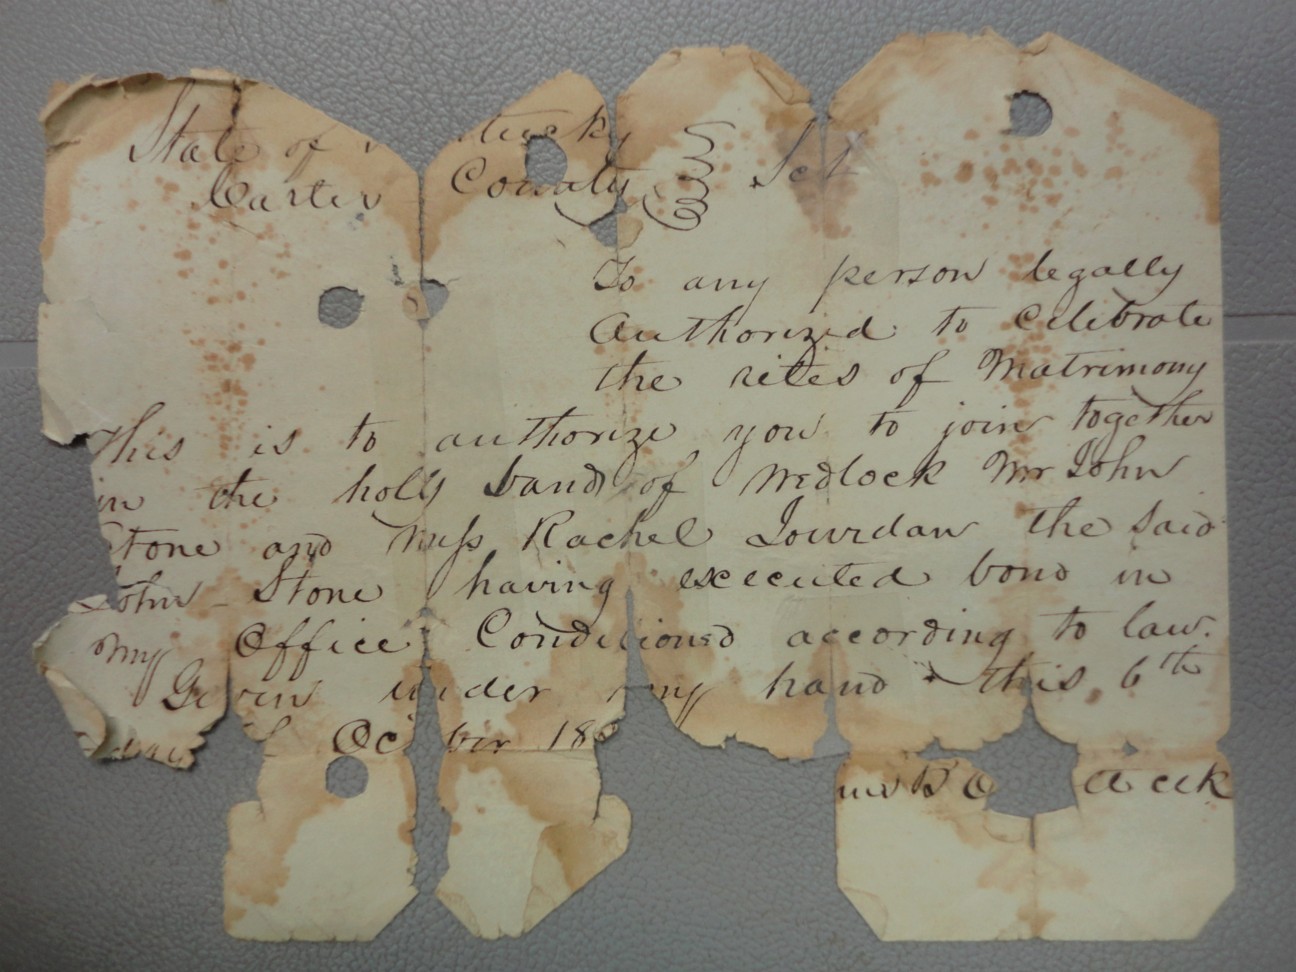 State of tucky
Carter County Sct
To any person legally
Authorized to Celebrate
the rites of Matrimony
This is to authorize you to join together
in the holy band of Wedlock Mr John
Stone and Miss Rachel Jourdan the said
John Stone having executed bond in
my Office Conditioned according to law.
Given under my hand this 6th
day Oc ber 18